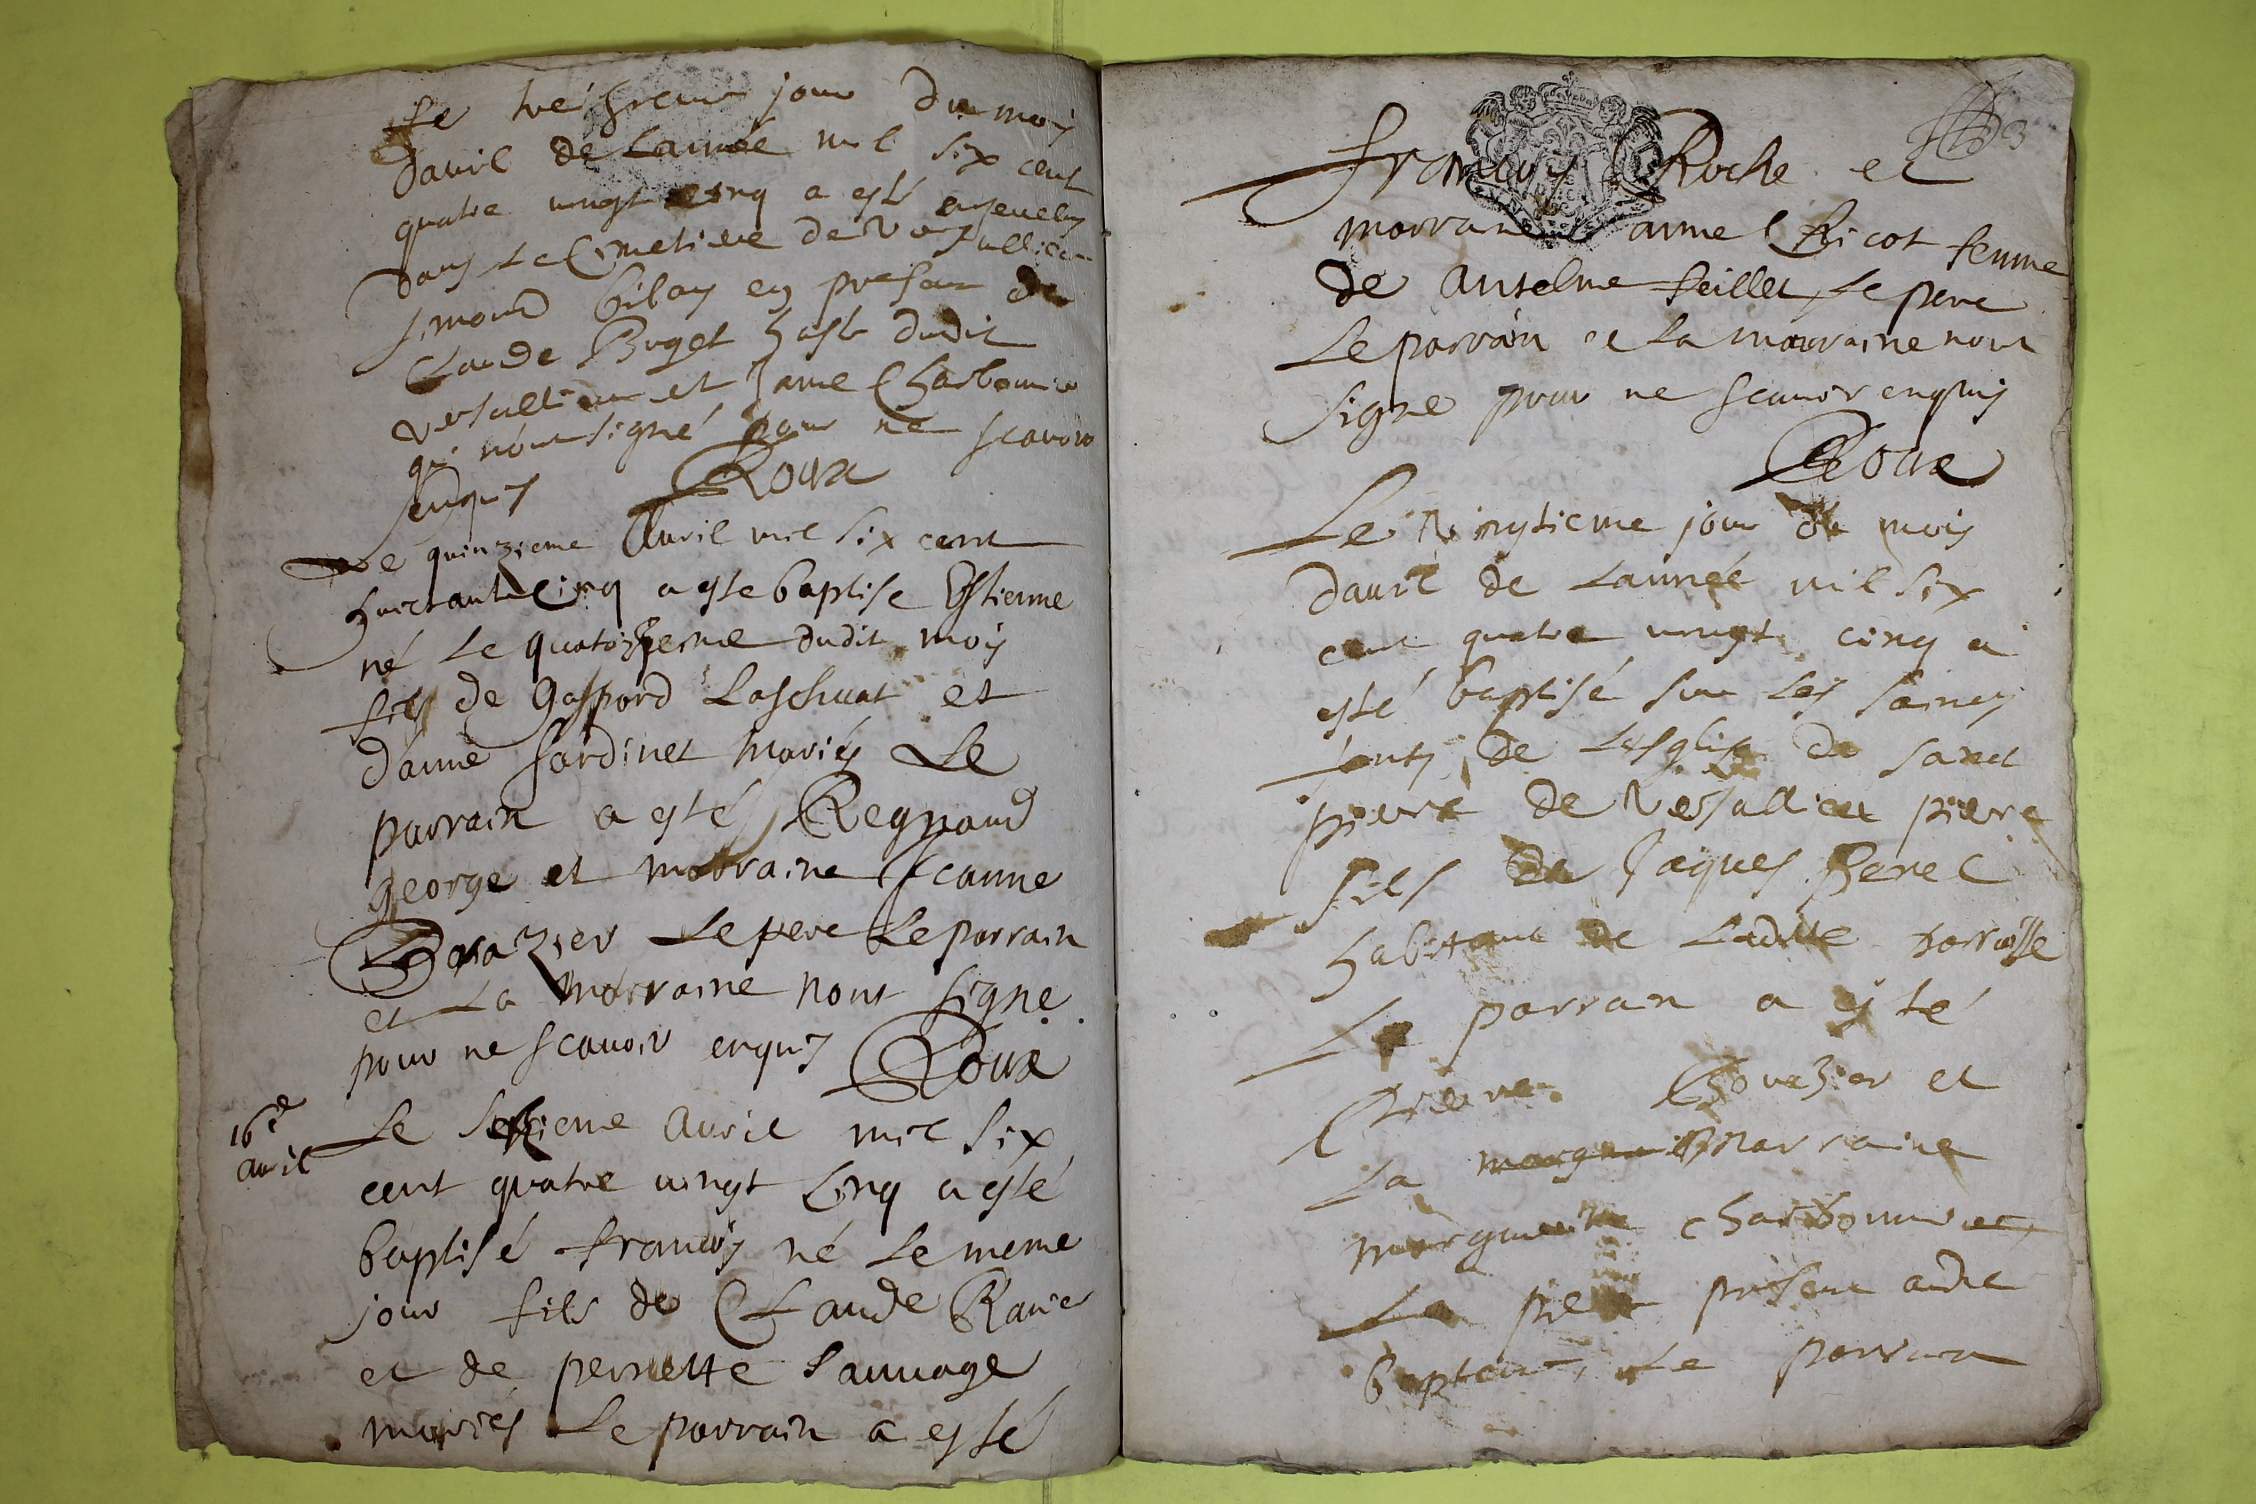 Le treisieme jour du mois
davril de Lannée mil six cent
quatre vingt cinq a esté ensevely
dans Le Cimetiere de Versallieu
simond en presence de
Claude Buget hoste dudit
versallieu et Jaime Charbonnier
qui nont signé pour ne scavoir
enquis Roux
Le quinzieme Avril mil six cent
huictante Cinq a este baptise Estienne
né Le quatorzieme dudit mois
fils de Gaspard Laschuat et
danne Sardinet mariés Le
parrain a esté Regnaud
george et marraine Jeanne
Brazier Le pere Le parrain
et La marraine nont signe
pour ne scavoir enquis Roux
16e
avril
Le seszieme Avril mil six
cent quatre vingt Cinq a esté
baptisé francois né Le meme
jour fils de Claude Ravier
et de pernette Sauvage
mariés Le parrain a esté
francois Roche et
marraine anne Ricot femme
de Anselme feillet Le pere
Le parrain et La marraine nont
signe pour ne scavoir enquis
Roux
Le vingtieme jour du mois
davril de Lannée mil six
cent quatre vingt cinq a
esté baptisé sur Les saincts
fonts de Lesglise de sainct
pierre de Versallieu pierre
fils de Jaques Perel
habitant de Ladite parroisse
Le parrain a esté
Pierre et
La marraine
marguerite charbonnier
Le pere present audit
bapteme, Le parrain